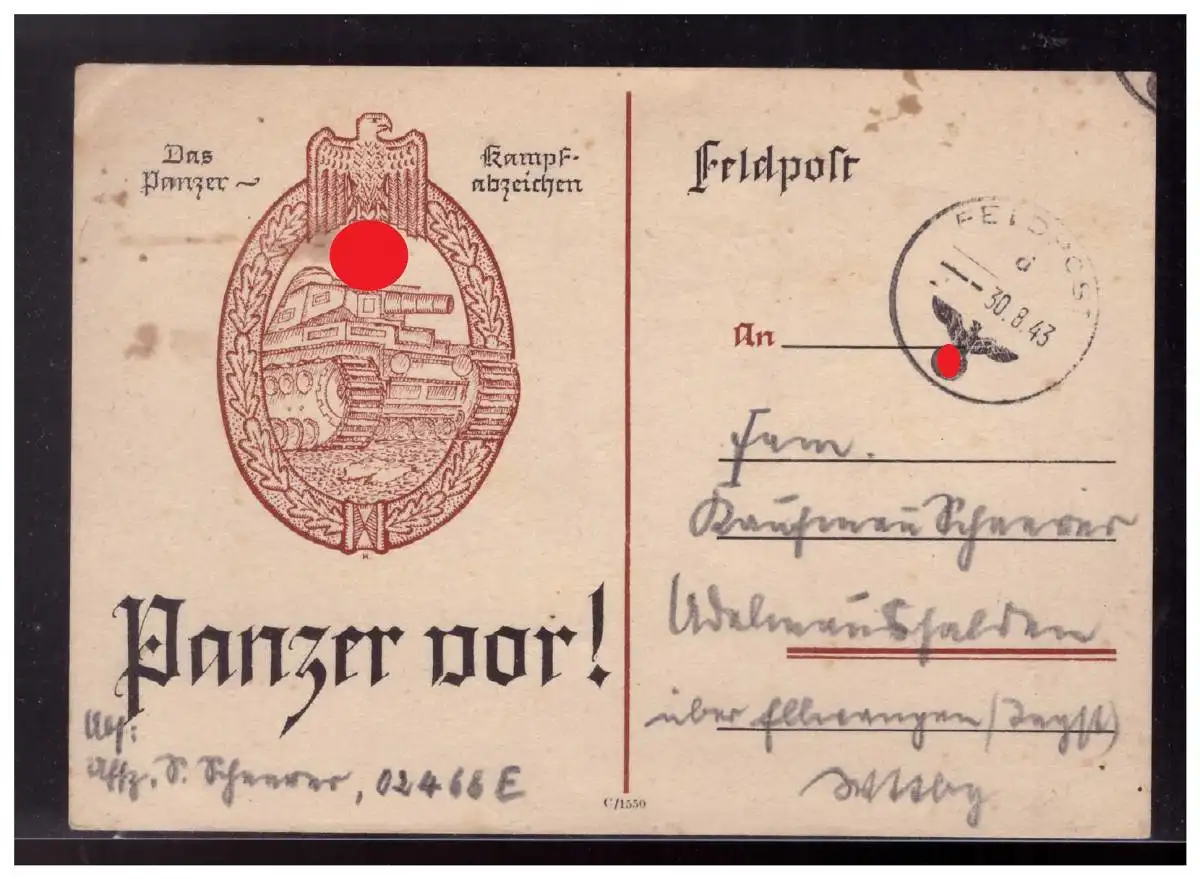 Das
Panzer~
Kampf-
abzeichen
Panzer vor!
Abs:
Uffz. S. Scheerer, 02468 E
C/1550
Feldpost
FELDPOST
d
30.8.43
An
Fam.
Kaufmann Scheerer
Adelmannsfelden
über Ellwangen (Jagst)
Wttbg